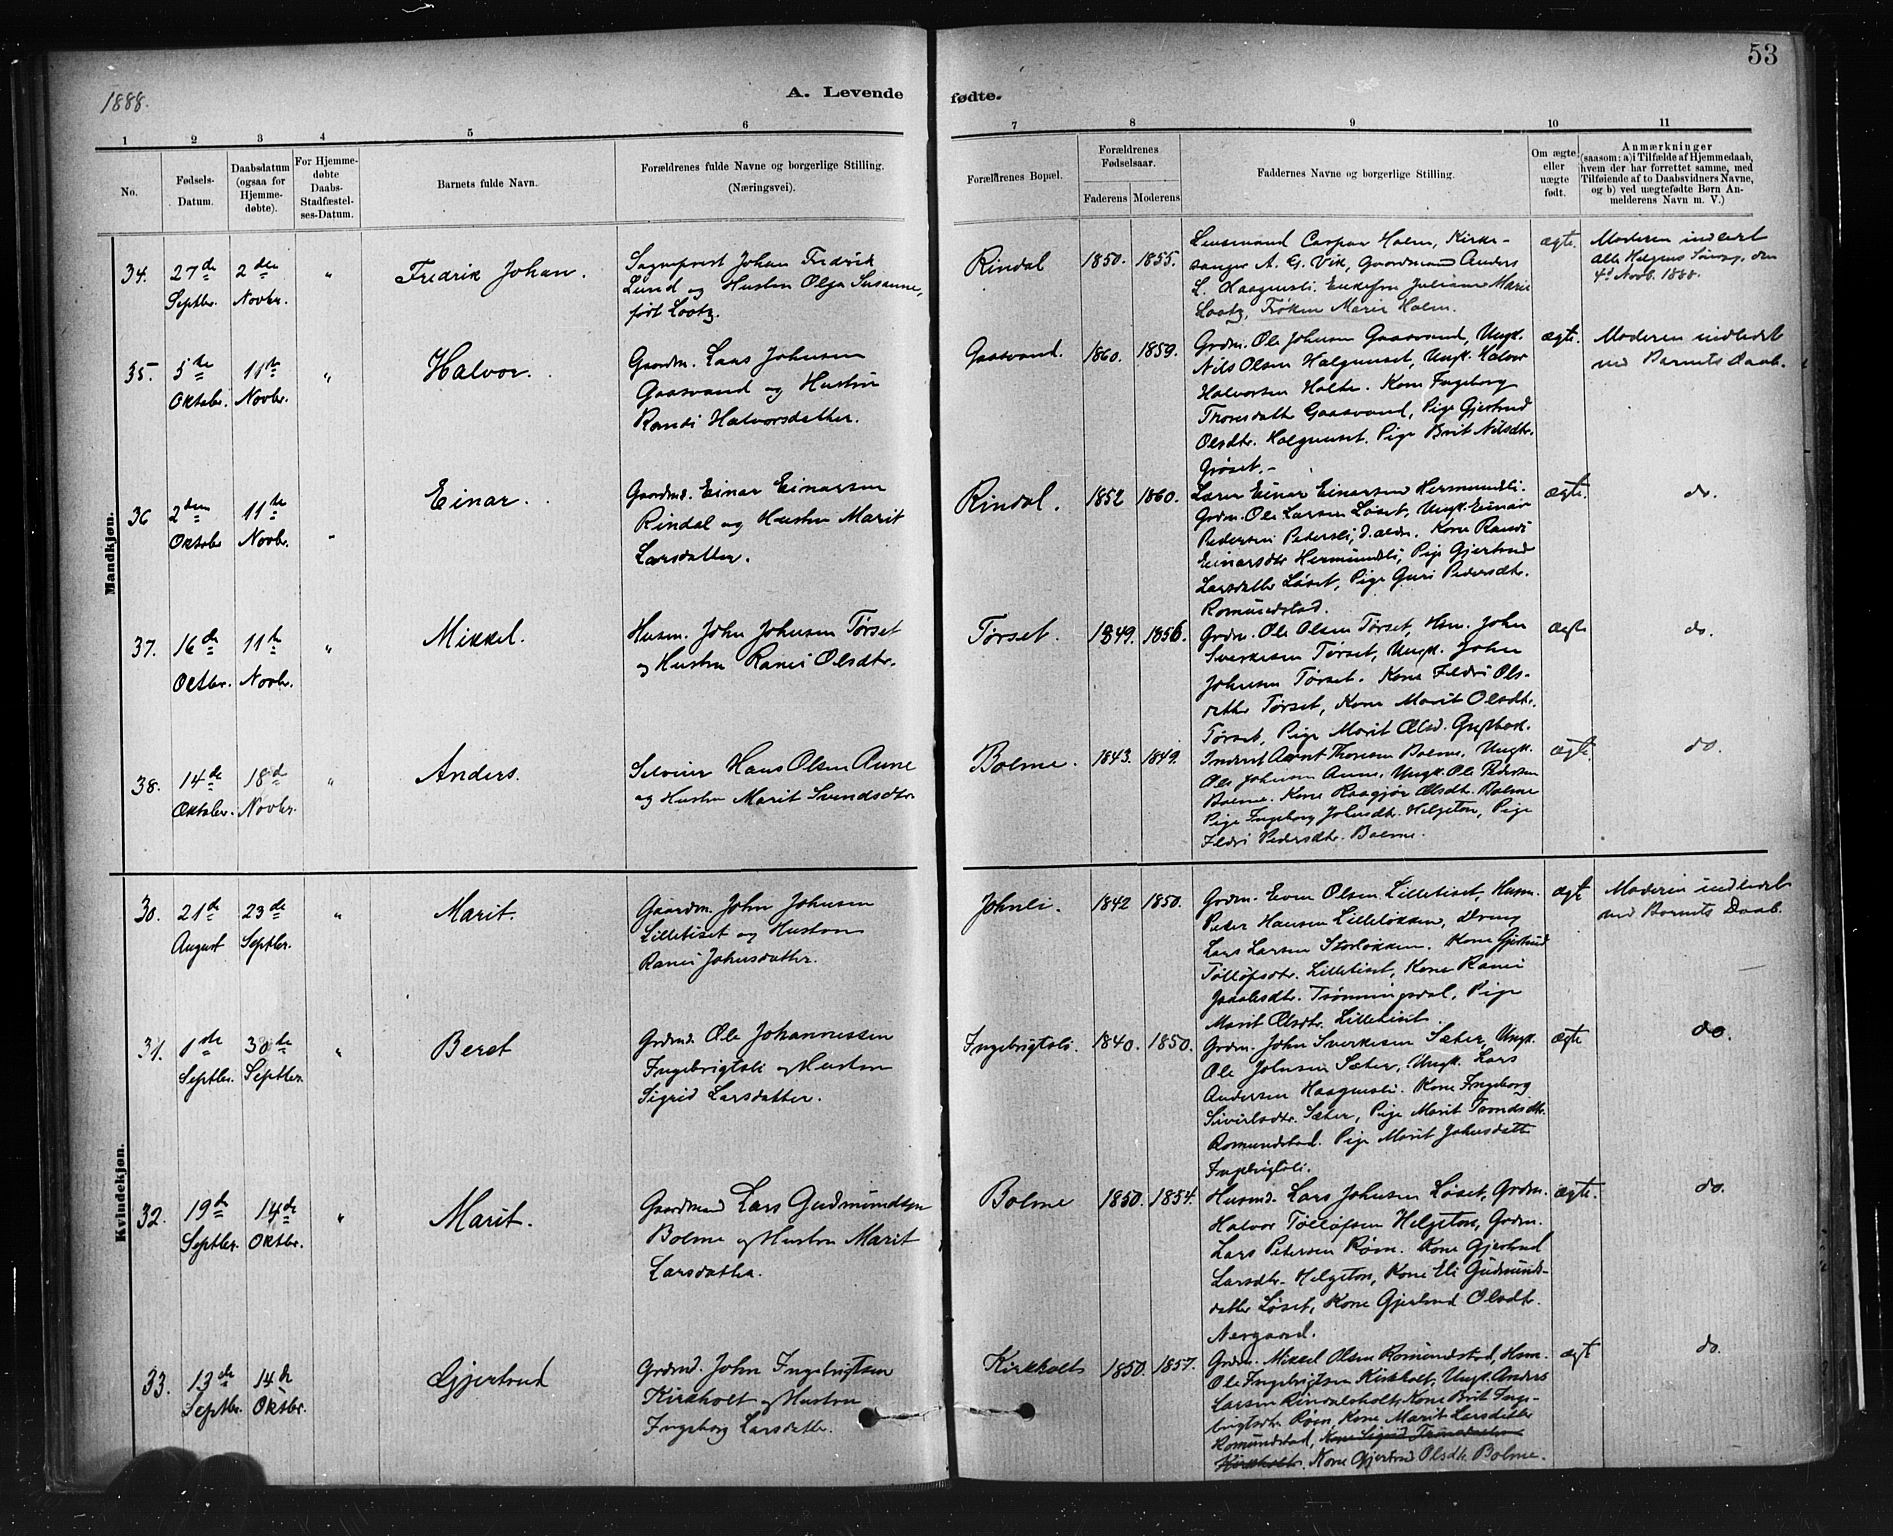 53
1888.
A. Levende fødte.
1 2 3 4 5 6 7 8 9 10 11
No.
Fødsels-Datum.
Daabsdatum (ogsaa for Hjemme-døbte).
For Hjemme-døbte Daabs-Stadfæstel-ses-Datum.
Barnets fulde Navn.
Forældrenes fulde Navne og borgerlige Stilling. (Næringsvei).
Forældrenes Bopæl.
Forældrenes Fødselsaar.
Faderens Moderens
Faddernes Navne og borgerlige Stilling.
Om ægte eller uægte født.
Anmærkninger (saasom: a) i Tilfælde af Hjemmedaab, hvem der har forrettet samme, med Tilføiende af to Daabsvidners Navne, og b) ved uægtefødte Børn An-melderens Navn m. V.)
Mandkjøn.
34. 27de Septbr. 2den Novbr. "
Fredrik Johan.
Sogneprest Johan Fredrik
Lund og Hustru Olga Susanne,
født Lootz.
Rindal 1850. 1855.
Lensmand Caspar Holm, Kirke-
sanger A. G. Vik, Gaardmand Anders
L. Haagensli. Enkefru Juliane Marie
Lootz, Frøken Marie Holm.
ægte.
Moderen indledt
alle Helgens Søndag, den
4de Novb. 1888.
35. 5de Oktobr. 11te Novbr. "
Halvor.
Gaardm. Lars Johnsen
Gaasvand og Hustru
Randi Halvorsdatter.
Gaasvand. 1860. 1859.
Grdm. Ole Johnsen Gaasvand, Ungk.
Nils Olsen Halgunset, Ungk. Halvor
Halvorsen Holte. Kone Ingeborg
Thoresdatter Gaasvand, Pige Gjertrud
Olsdtr. Halgunset. Pige Brit Nilsdtr.
Grøset.-
ægte.
Moderen indledt
ved Barnets Daab.
36 2den Oktobr 11te Novbr. "
Einar.
Gaardmd. Einar Einarsen
Rindal og Hustru Marit
Larsdatter.
Rindal. 1852 1860.
Lærer Einar Einarsen Hermundsli.
Grdm. Ole Larsen Løset, Ungk. Einar
Pedersen Petersli, d. ældr. Kone Randi
Einarsdtr Hermundsli, Pige Gjertrud
Larsdatter Løset, Pige Guri Pedersdtr.
Romundstad.
ægte.
do.
37. 16de Octbr. 11te Novbr. "
Mikkel.
Husm. John Johnsen Tørset
og Hustru Ranei Olsdtr.
Tørset. 1849. 1856.
Grdm. Ole Olsen Tørset, Hsm. John
Sverkesen Tørset, Ungk. John
Johnsen Tørset. Kone Ildri Ols-
datter Tørset, Kone Marit Olsdtr.
Tørset, Pige Marit Olsd.
ægte
do.
38. 14de Oktober. 18de Novbr. "
Anders.
Selveier Hans Olsen Aune
og Hustru Marit Svendsdtr
Bolme. 1843. 1849.
Inderst Arnt Thoresen Bolme, Ungk.
Ole Johnsen Aune, Ungk. Ole Pedersen
Bolme. Kone Raagjør Olsdtr. Bolme
Pige Ingeborg Johnsdtr. Helgeton, Pige
Ildri Pedersdtr. Bolme.
ægte
do.
Kvindekjøn.
30. 21de August 23de Septbr. "
Marit.
Gaardm. John Johnsen
Lilletiset og Hustru
Ranei Johnsdatter.
Johnli. 1842 1850.
Grdm. Even Olsen Lilletiset, Husm.
Peter Hansen Lilleløkken, dreng
Lars Larsen Storløkken. Kone Gjertrud
Tolløfsdtr. Lilletiset, Kone Ranei
Trønningsdal, Pige
Marit Olsdtr. Lilletiset.
ægte
Moderen indledt
ved Barnets Daab.
31. 1de Septbr. 30de Septbr. "
Beret
Grdmd. Ole Johannessen
Ingebrigtsli og Hustru
Sigrid Larsdatter.
Ingebrigtsli. 1840. 1850.
Grdm. John Sverkesen Sæter, Ungk.
Ole Johnsen Sæter, Ungk. Lars
Andersen Haagensli. Kone Ingeborg
Siverlsdtr. Sæter, Pige Marit Trondsdtr.
Romundstad. Pige Marit Johnsdatter
Ingebrigtsli.
ægte
do.
32. 19de Septbr. 14de Oktbr. "
Marit.
Gaardmand Lars Gudmundsen
Bolme og Hustru Marit
Larsdatter.
Bolme 1850. 1854.
Husmd. Lars Johnsen Løset, Grdm.
Halvor Tolløfsen Helgeton, Grdm.
Lars Petersen Røen. Kone Gjertrud
Larsdtr. Helgeton, Kone Eli Gudmunds-
datter Løset, Kone Gjertrud Olsdtr.
Nergaard.
ægte.
do.
33. 13de Septbr. 14de Oktbr.
Gjertrud
Grdmd. John Ingebrigtsen
Kirkholt og Hustru
Ingeborg Larsdatter.
Kirkholt 1850. 1857.
Grdm. Mikkel Olsen Romundstad, Hsm.
Ole Ingebrigtsen Kirkholt, Ungk. Anders
Larsen Rindalsholt, Kone Brit Inge-
brigtsdtr. Røen, Kone Marit Larsdatter
Romundstad, Kone Sigrid
Kirkholt. Kone Gjertrud Olsdtr. Bolme.
ægte
do.